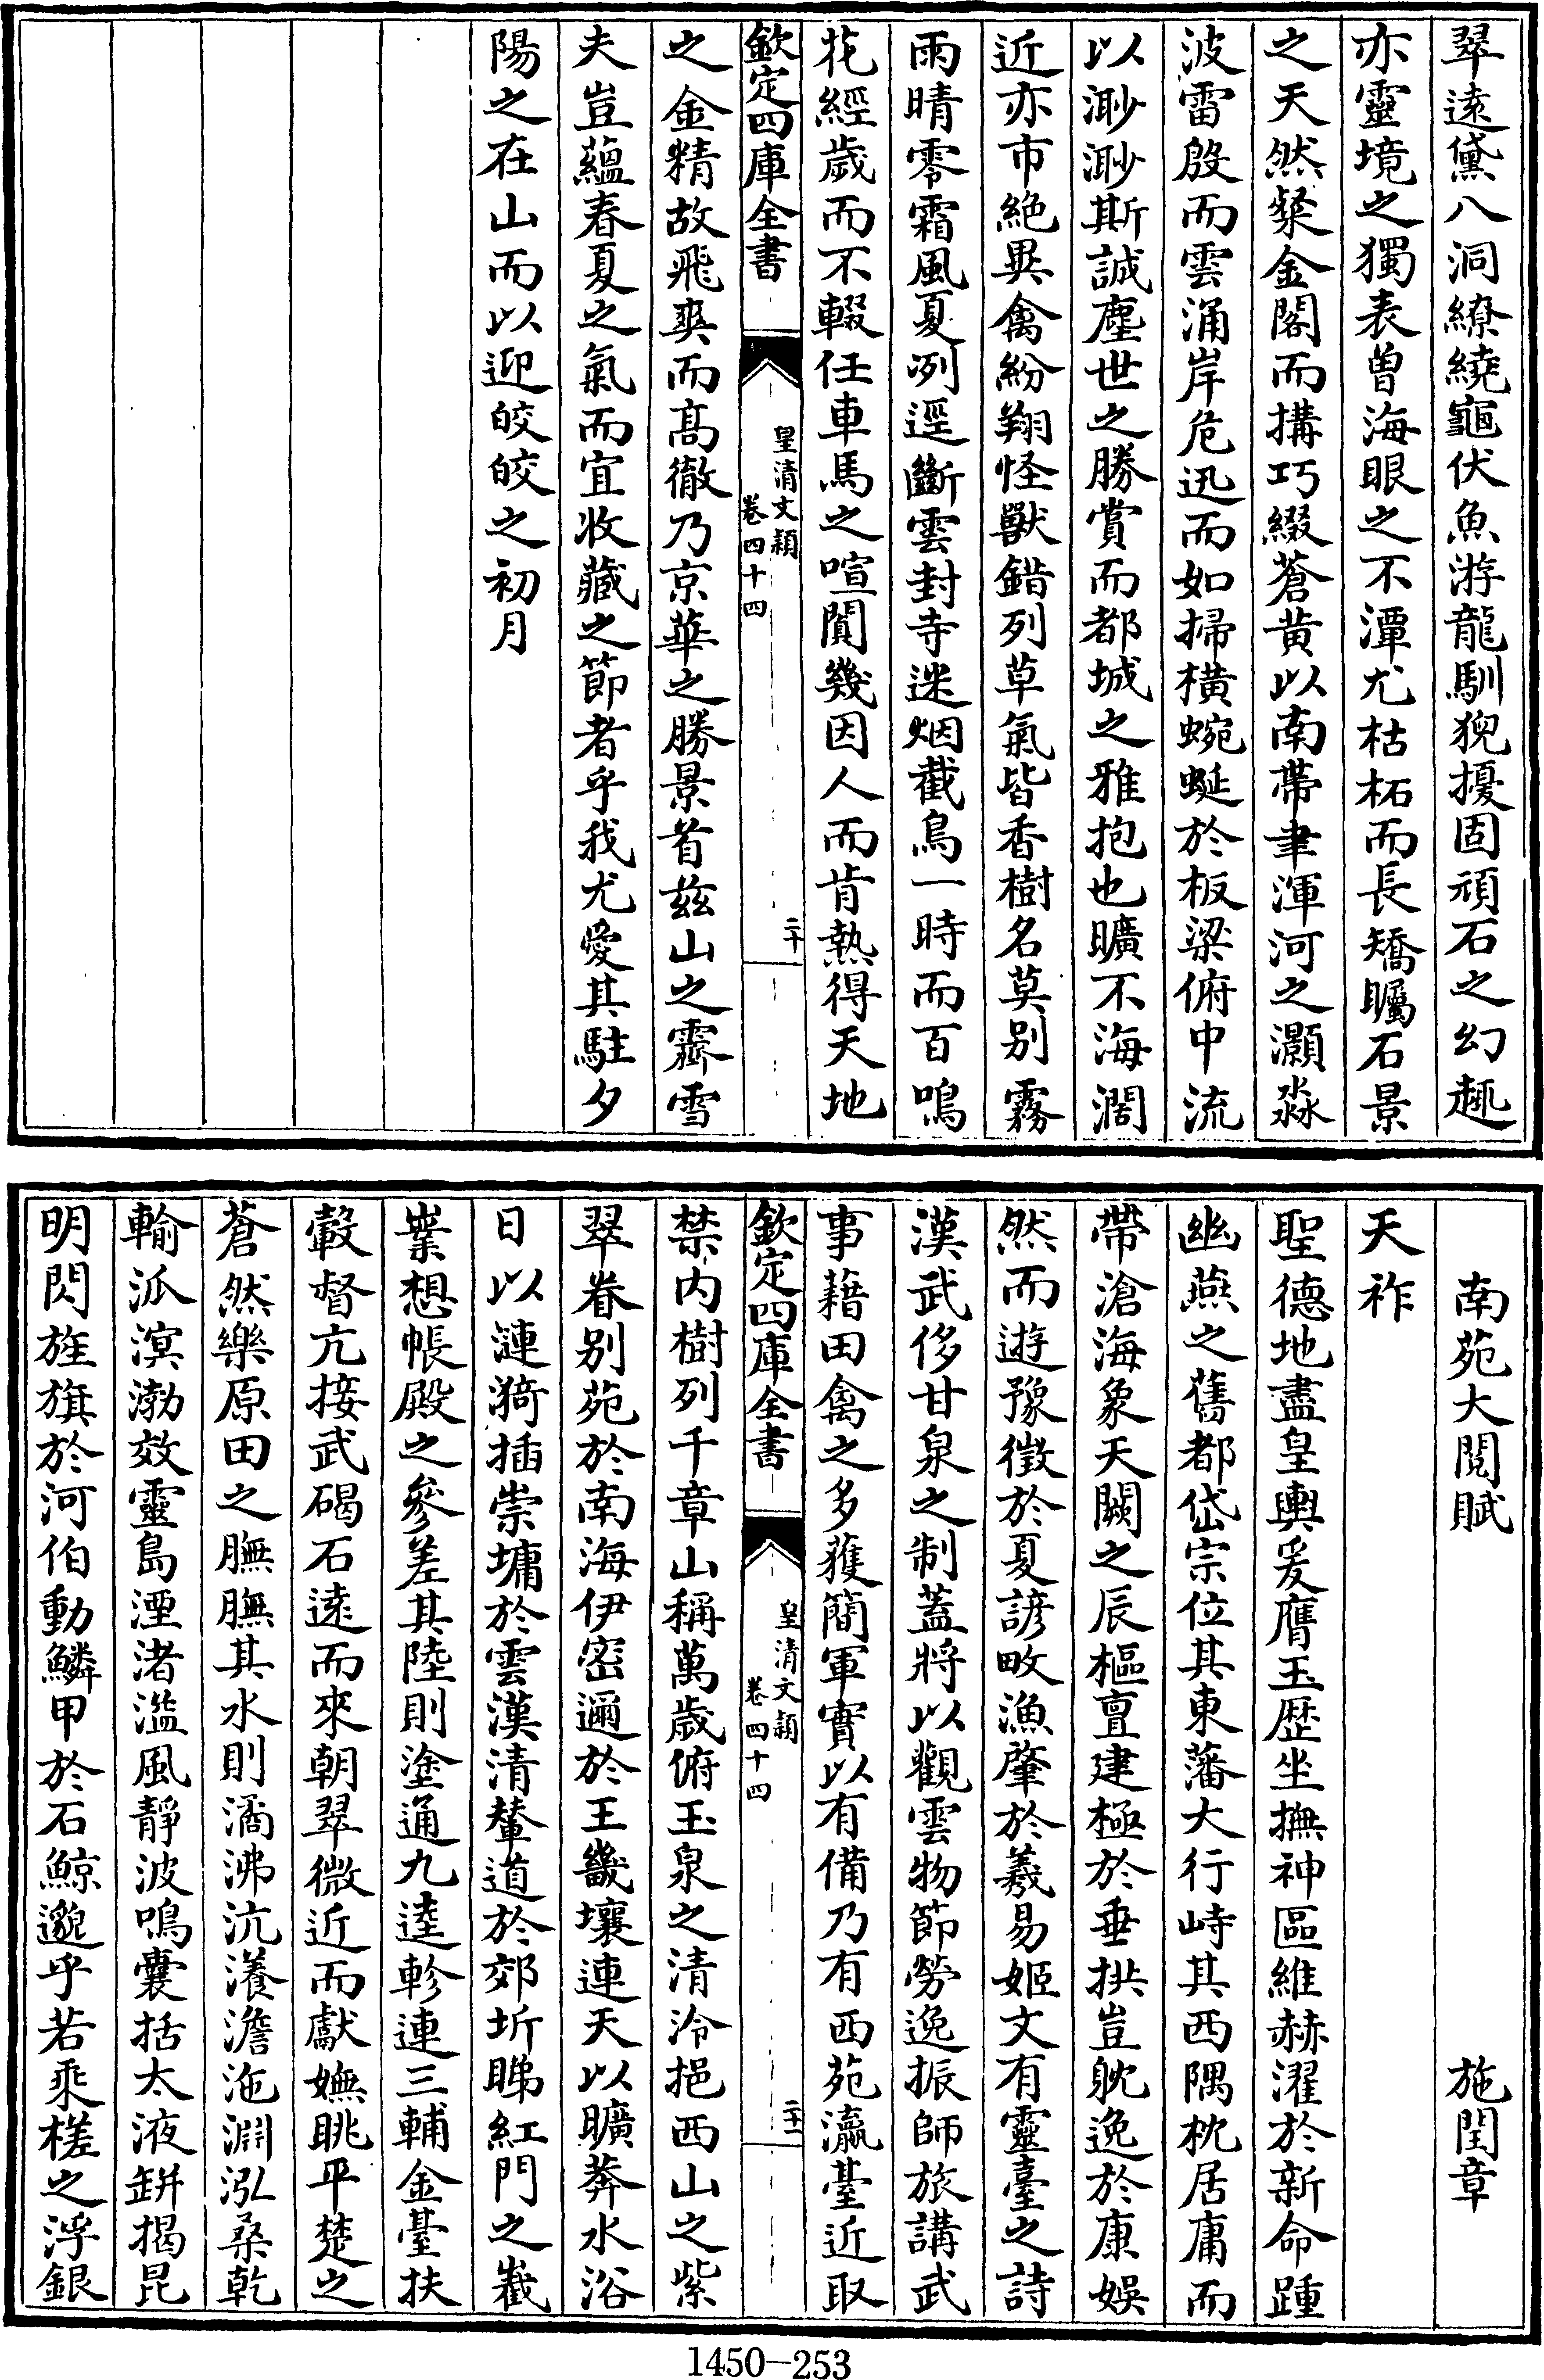 翠遠黛八洞繚繞龜伏魚游龍馴猊擾固頑石之幻趣
亦靈境之獨表曽海眼之不潭尤枯柘而長矯矚石景
之天然粲金閣而搆巧綴蒼黄以南帶聿渾河之灝淼
波雷殷而雲涌岸危迅而如掃橫蜿蜒於板梁俯中流
以渺渺斯誠塵世之勝賞而都城之雅抱也曠不海濶
近亦市絶異禽紛翔怪獸錯列草氣皆香樹名莫别霧
雨晴零霜風夏冽逕斷雲封寺迷烟截鳥一時而百鳴
花經歲而不輟任車馬之喧闐幾因人而肯熱得天地
欽定四庫全書
皇清文穎
卷四十四
二十
之金精故飛爽而髙徹乃京華之勝景首兹山之霽雪
夫豈蘊春夏之氣而宜收藏之節者乎我尤愛其駐夕
陽之在山而以迎皎皎之初月
南苑大閱賦 施閏章
天祚
聖德地盡皇輿爰膺玉歴坐撫神區維赫濯於新命踵
幽燕之舊都岱宗位其東藩大行峙其西隅枕居庸而
帶滄海象天闕之辰樞亶建極於垂拱豈躭逸於康娛
然而遊豫徴於夏諺畋漁肇於羲易姬文有靈臺之詩
漢武侈甘泉之制葢將以觀雲物節勞逸振師旅講武
事藉田禽之多獲簡軍實以有備乃有西苑瀛臺近取
欽定四庫全書
皇清文穎
卷四十四
二十一
禁内樹列千章山稱萬歲俯玉泉之清泠挹西山之紫
翠眷别苑於南海伊密邇於王畿壤連天以曠莽水浴
日以漣漪插崇墉於雲漢清輦道於郊圻睇紅門之嶻
嶪想帳殿之參差其陸則塗通九逵軫連三輔金臺扶
轂督亢接武碣石遠而來朝翠微近而獻嫵眺平楚之
蒼然樂原田之膴膴其水則潏沸沆瀁澹沲淵泓桑乾
輸派溟渤效靈島湮渚溢風靜波鳴囊括太液缾揭昆
明閃旌旗於河伯動鱗甲於石鯨邈乎若乘槎之浮銀
1450—253